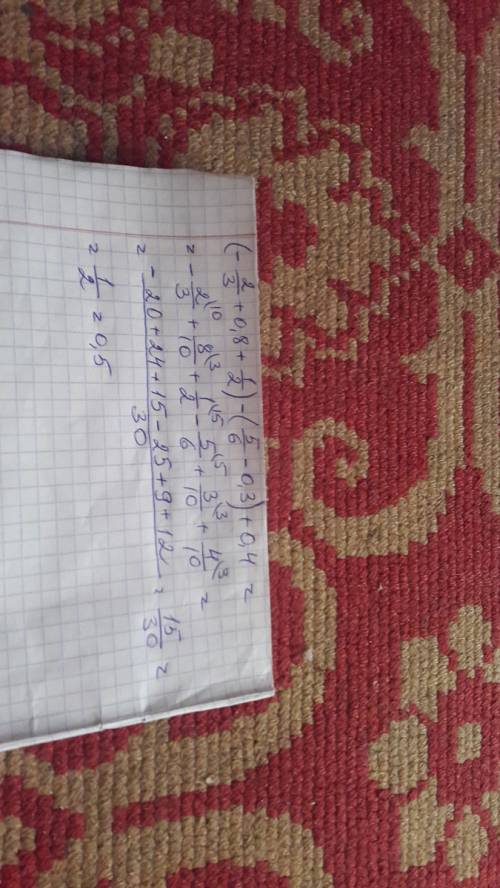 (-2/3 + 0,8 + 1/2) - (5/6 - 0,3) + 0,4 =
= -2/3^(10 + 8/10^(3 + 1/2^(15 - 5/6^(5 + 3/10^(3 + 4/10^(3 =
= (-20 + 24 + 15 - 25 + 9 + 12)/30 = 15/30 =
= 1/2 = 0,5